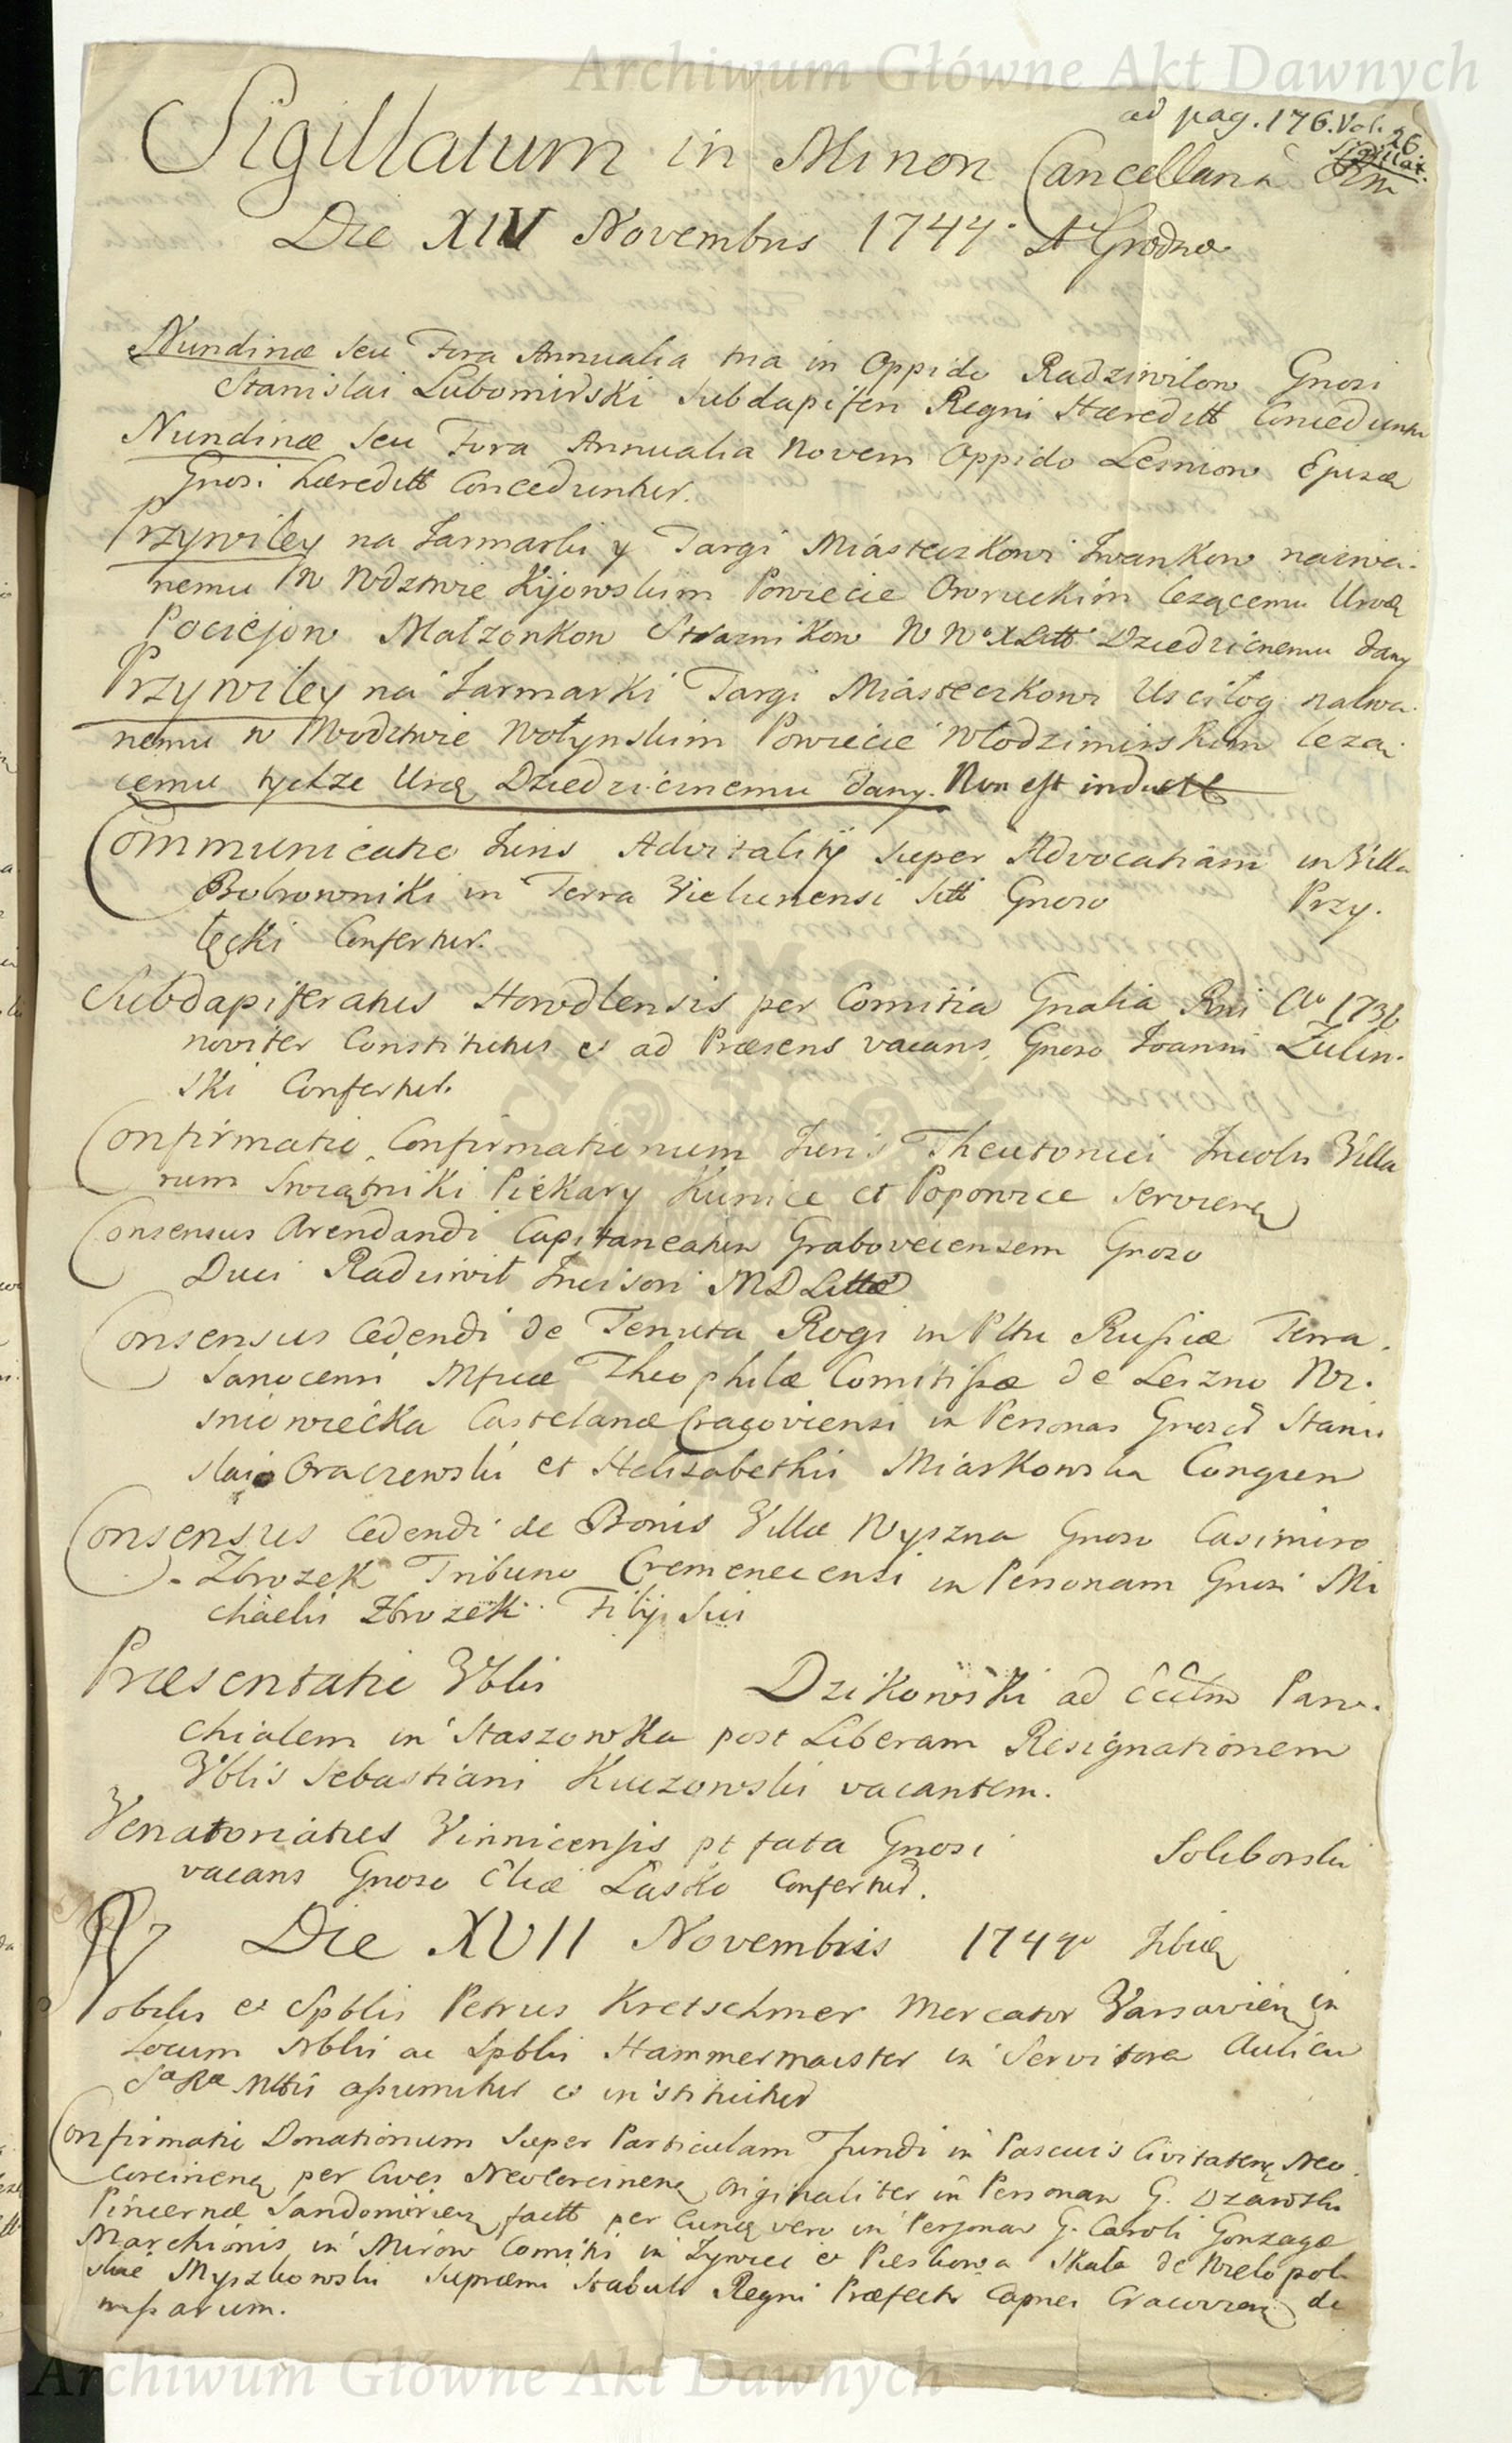 Archiwum Główne Akt Dawnych
ad pag. 176. Vol. 26.
Sigillat.
Sigillatum in Minori Cancellaria
Die XIV Novembris 1744. A Grodnæ
Nundinæ seu Fora Annualia tria in Oppido Radziwilow Gnosi
Stanislai Lubomirski Subdapiferi Regni Hæreditt Conceduntur
Nundinæ seu Fora Annualia Novem Oppido Lesniow
Gnosi hæreditt Conceduntur.
Przywiley na Jarmarki y Targi Miasteczkowi Iwankow nazwa-
nemu W Wdztwie Kijowskim Powiecie Owruckim lezącemu Urod
Pociejow Malzonkow Straznikow W Wo X Litt Dziedzicznemu dany
Przywiley na Jarmarki Targi Miasteczkowi Uscilog nazwa-
nemu w Wodztwie Wołynskim Powiecie Włodzimirskim leza-
cemu tychze Urod Dziedzicznemu dany. Non est induct
Communicatio Juris Advitalitij super Advocatiam in Villa
Bobrowniki in Terra Vielunensi sitt Gnoso Przy-
łęcki Confertur.
Subdapiferatus Horodlensis per Comitia Gnalia Rni Ao 1736
noviter Constitutus et ad Præsens vacans Gnoso Joanni Zulin-
ski Confertur.
Confirmatio Confirmationum Juris Theutonici Incolis Villa
rum Swiątniki Piekary Kunice et Popowice
Consensus Arendandi Capitaneatum Graboveciensem Gnoso
Duci Radziwił Incisori MD Litt
Consensus Cedendi de Tenuta Rogi in Pltu Russiæ Terra
Sanocensi Mficæ Theophilæ Comitissæ de Leszno Wi-
sniowiecka Castelanæ Cracoviensi in Personas Gnosor Stanis
slai Oraczewski et Helisabethis Miaskowska Congien
Consensus Cedendi de Bonis Villæ Wyszna Gnoso Casimiro
Zbrozek Tribuno Cremenecensi in Personam Gnosi Mi
chaelis Zbrozek Filij Sui
Præsentatio Vblis Dzikowski ad Ecclm Paro-
chialem in Staszowka post Liberam Resignationem
Vblis Sebastiani Kuczowski vacantem.
Venatoriatus Vinnicensis pt fata Gnosi Soliborski
vacans Gnoso Eliæ Lasko Confertur.
Die XVII Novembris 1744o Ibid
Nobilis et Spblis Petrus Kretschmer Mercator Varsavien in
Locum Nblis ac Spblis Hammermaister in Servitore Aulicu
Sa Ra Mttis assumitur et instituitur
Confirmatio Donationum super Particulam fundi in Pascuis Civitaten Neo
Corcinen per Cives Neocorcinen originaliter in Personam G.
Pincernæ Sandomirien factt per Eund vero in Personas G. Caroli Gonzaga
Marchionis in Mirow Comitis in Zywiec et Pieskowa Skała de Wielopol-
skie Myszkowski Supremi Stabuli Regni Præfecti Capnei Cracovien de
missarum.
Archiwum Główne Akt Dawnych